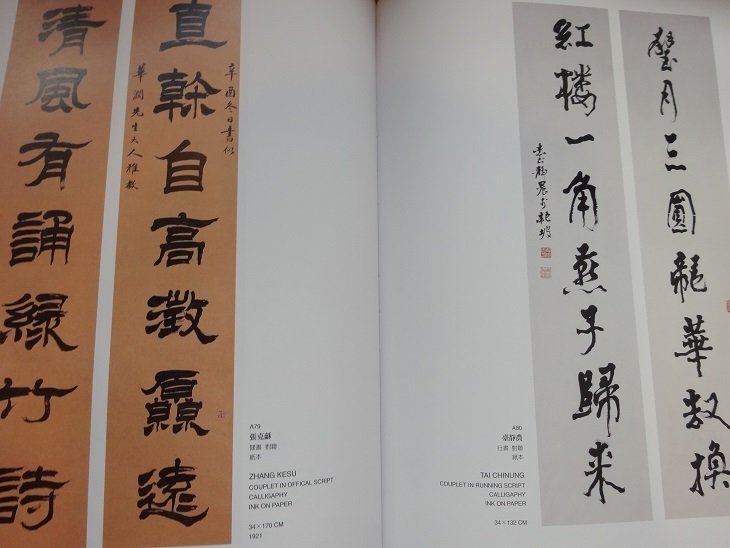 直幹自高澂厵遠
辛酉冬日書似
清風有誦綠竹詩
華潤先生大人雅教
A79
張克龢
隸書 對聯
紙本
ZHANG KESU
COUPLET IN OFFICAL SCRIPT
CALLIGAPHY
INK ON PAPER
34×170 CM
1921
璧月三圓龍華數換
紅樓一角燕子歸來
臺靜農於龍坡
A80
臺靜農
行書 對聯
紙本
TAI CHINUNG
COUPLET IN RUNNING SCRIPT
CALLIGAPHY
INK ON PAPER
34×132 CM